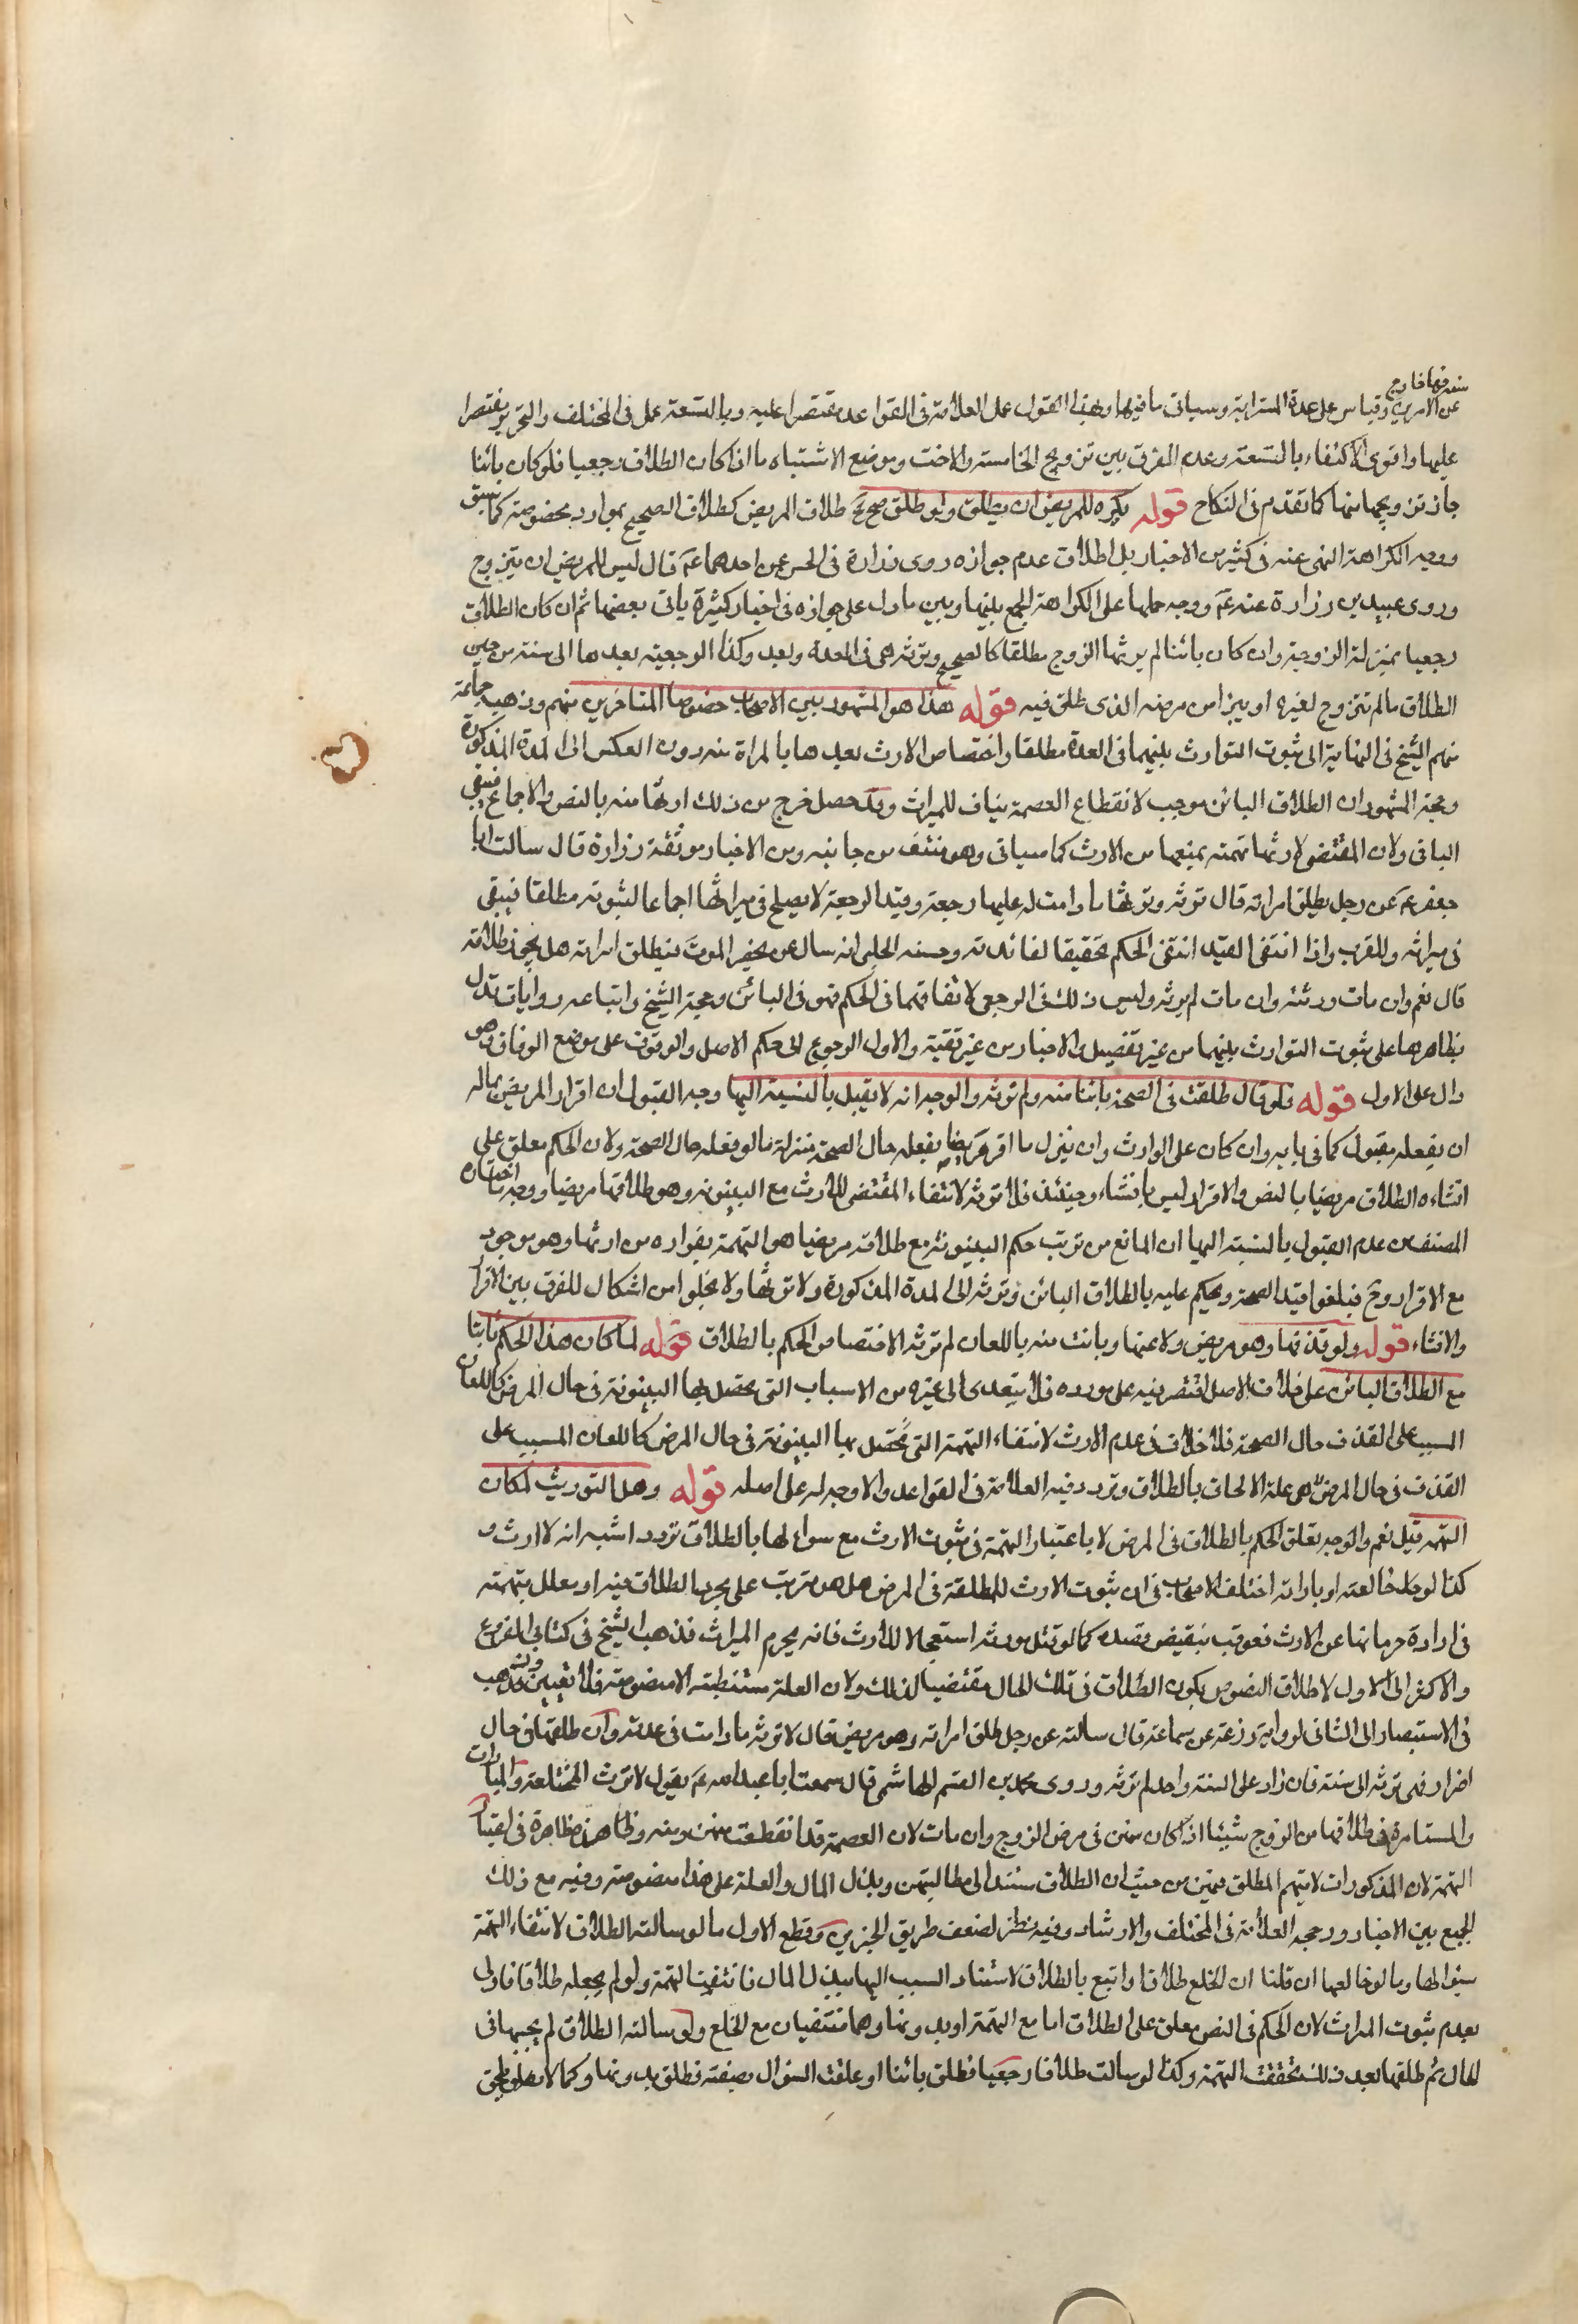 عن الامرين وقياس على عدة المسترابة وسياتى ما فيها وبهذا القول عمل العلامة فى القواعد مقتصرا عليه وبالتسعة عمل فى المختلف والتحرير مقتصرا
عليها واقوى الاكتفاء بالتسعة وعدم الفرق بين تزويج الخامسة والاخت وموضع الاشتباه ما اذا كان الطلاق رجعيا فلو كان بائنا
جاز تزويجهما كما تقدم فى النكاح قوله يكره للمريض ان يطلق ولو طلق صح طلاق المريض كطلاق الصحيح بموارد بخصوصة كما سبق
ووجه الكراهة النهى عنه فى كثير من الاخبار بل اطلاق عدم جوازه روى زرارة فى الحسن عن احدهما عم قال ليس للمريض ان يتزوج
وروى عبيد بن زرارة عنه عم ووجه حملها على الكراهة الجمع بينها وبين ما دل على جوازه فى اخبار كثيرة ياتى بعضها ثم ان كان الطلاق
رجعيا بمنزلة الزوجة وان كان بائنا لم يرثها الزوج مطلقا كالصحيح وترثه هى فى العدة وبعد وكذا الرجعية بعدها الى سنة من حين
الطلاق مالم تتزوج لغيره او يبرا من مرضه الذى طلق فيه قوله هذا هو المشهور بين الاصحاب خصوصا المتاخرين منهم وذهب جماعة
منهم الشيخ فى النهاية الى ثبوت التوارث بينهما فى العدة مطلقا واختصاص الارث بعدها بالمراة منه دون العكس الى المدة المذكورة
وحجة المشهور ان الطلاق البائن موجب لانقطاع العصمة ينافى للميراث وقد حصل خرج من ذلك ارثها منه بالنص والاجماع فيبقى
الباقى ولان المقتضى لارثها تهمته بمنعها من الارث كما سياتى وهو منتف من جانبه ومن الاخبار موثقة زرارة قال سالت ابا
جعفر عم عن رجل يطلق امراته قال ترثه ويرثها ما دامت له عليها رجعة وقيد الرجعة لا يصلح فى ميراثها اجماعا لثبوته مطلقا فيبقى
فى ميراثه وللقرب واذا انتفى القيد انتفى الحكم تحقيقا لفائدته وحسنه الحلبى انه سال عن يحضر الموت فيطلق امراته هل يجوز طلاقه
قال نعم وان مات ورثته وان مات لم يرثه وليس ذلك فى الرجعى لاتفاقهما فى الحكم فهو فى البائن وحجة الشيخ واتباعه روايات تدل
بظاهرها على ثبوت التوارث بينهما من غير تفصيل والاخبار من غير تقية والاول الرجوع الى حكم الاصل والوقوف على موضع الوفاق وهو
دال على الاول قوله ولو قال طلقت فى الصحة بائنا منه ولم ترثه والوجه انه لا يقبل بالنسبة اليها وجه القبول ان اقرار المريض بماله
ان يفعله مقبول كما فى بابه وان كان على الوارث وان ينزل ما اقر مريضا بفعله حال الصحة منزلة ما لو فعله حال الصحة ولان الحكم معلق على
انشاءه الطلاق مريضا بالنص والاقرار ليس بانشاء وحينئذ فلا ترثه لانتفاء المقتضى للارث مع البينونة وهو طلاقها مريضا ووجه ما اختاره
المصنف من عدم القبول بالنسبة اليها ان المانع من ترتب حكم البينونة مع طلاقه مريضا هو التهمة بفراره من ارثها وهو موجود
مع الاقرار وح فيلغوا قيد الصحة ويحكم عليه بالطلاق البائن وترثه الى المدة المذكورة ولا يرثها ولا يخلوا من اشكال للفرق بين الاقرار
والانشاء قوله ولو قذفها وهو مريض ولاعنها وبانت منه باللعان لم ترثه الاختصاص الحكم بالطلاق قوله لما كان هذا الحكم ثابتا
مع الطلاق البائن على خلاف الاصل اقتصر فيه على مورده فلا يتعدى الى غيره من الاسباب التى تحصل بها البينونة فى حال المرض كاللعان
المسبب على القذف حال الصحة فلا خلاف فى عدم الارث لانتفاء التهمة التى تحصل بها البينونة فى حال المرض كاللعان المسبب على
القذف فى حال المرض هى علة الالحاق بالطلاق وتردد فيه العلامة فى القواعد والاوجه له على اصله قوله وهل التوريث لمكان
التهمة قيل نعم والوجه تعلق الحكم بالطلاق فى المرض لا باعتبار التهمة فى ثبوت الارث مع سؤالها بالطلاق تردد اشبه انه لا ارث و
كذا لو خالعته او بارته اختلف الاصحاب فى ان ثبوت الارث للمطلقة فى المرض هل هو مترتب على مجرد الطلاق فيه او معلل بتهمته
فى ارادة حرمانها عن الارث فعوقب بنقيض قصده كما لو قتل مورثه استعجالا للارث فانه يحرم الميراث فذهب الشيخ فى كتابى الفروع
والاكثر الى الاول لاطلاق النصوص بكون الطلاق فى تلك الحال مقتضيا لذلك ولان العلة مستنبطة الا منصوصة فلا تعيين وذهب
فى الاستبصار الى الثانى لرواية زرعة عن سماعة قال سالته عن رجل طلق امراته وهو مريض قال لا ترثه ما دامت فى عدته وان طلقها فى حال
اضرار فهى ترثه الى سنة فان زاد على السنة واحد لم ترثه وروى محمد بن القسم الهاشمى قال سمعت ابا عبد الله عم يقول لا ترث المختلعة والمبارات
والمستامرة فى طلاقها من الزوج شيئا اذا كان منهن فى مرض الزوج وان مات لان العصمة قد انقطعت منهن ومنه وظاهر هذه ظاهرة فى اعتبار
التهمة لان المذكورات لا يتهم المطلق منهن من حيث ان الطلاق مستند الى مطالبتهن وبذل المال والعلة على هذا منصوصة وفيه مع ذلك
الجمع بين الاخبار ورجحه العلامة فى المختلف والارشاد وفيه نظر لضعف طريق الخبرين وقطع الاول ما لو سالته الطلاق لانتفاء التهمة
بسؤالها وما لو خالعها ان قلنا ان الخلع طلاق او اتبع بالطلاق لاستناد السبب اليها ببذل المال فانتفت التهمة ولو لم يجعله طلاقا فاولى
بعدم ثبوت الميراث لان الحكم فى النص معلق على الطلاق اما مع التهمة او بدونها وهما منتفيان مع الخلع ولو سالته الطلاق لم يجبها فى
الحال ثم طلقها بعد ذلك تحققت التهمة وكذا لو سالت طلاقا رجعيا فطلق بائنا او علقت السؤال بصفة فطلق بدونها وكما لا